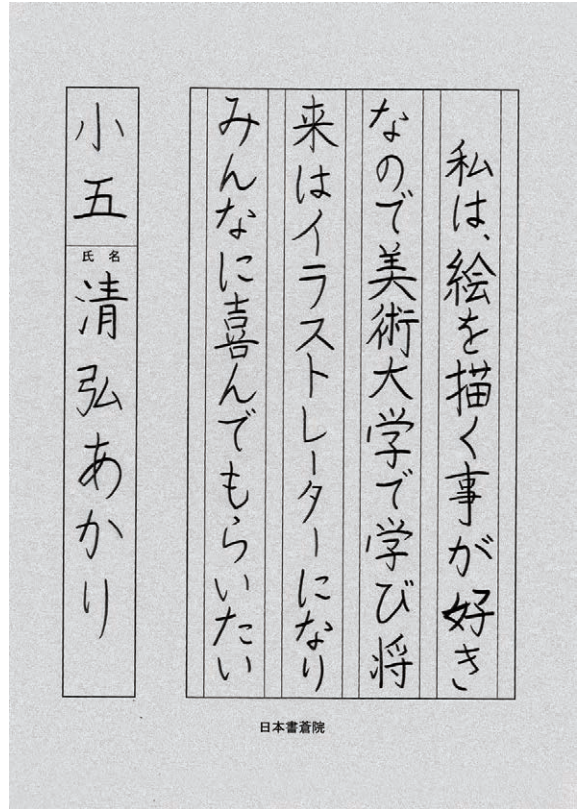 私は、絵を描く事が好き
なので美術大学で学び将
来はイラストレーターになり
みんなに喜んでもらいたい
小五
氏名
清弘あかり
日本書蒼院